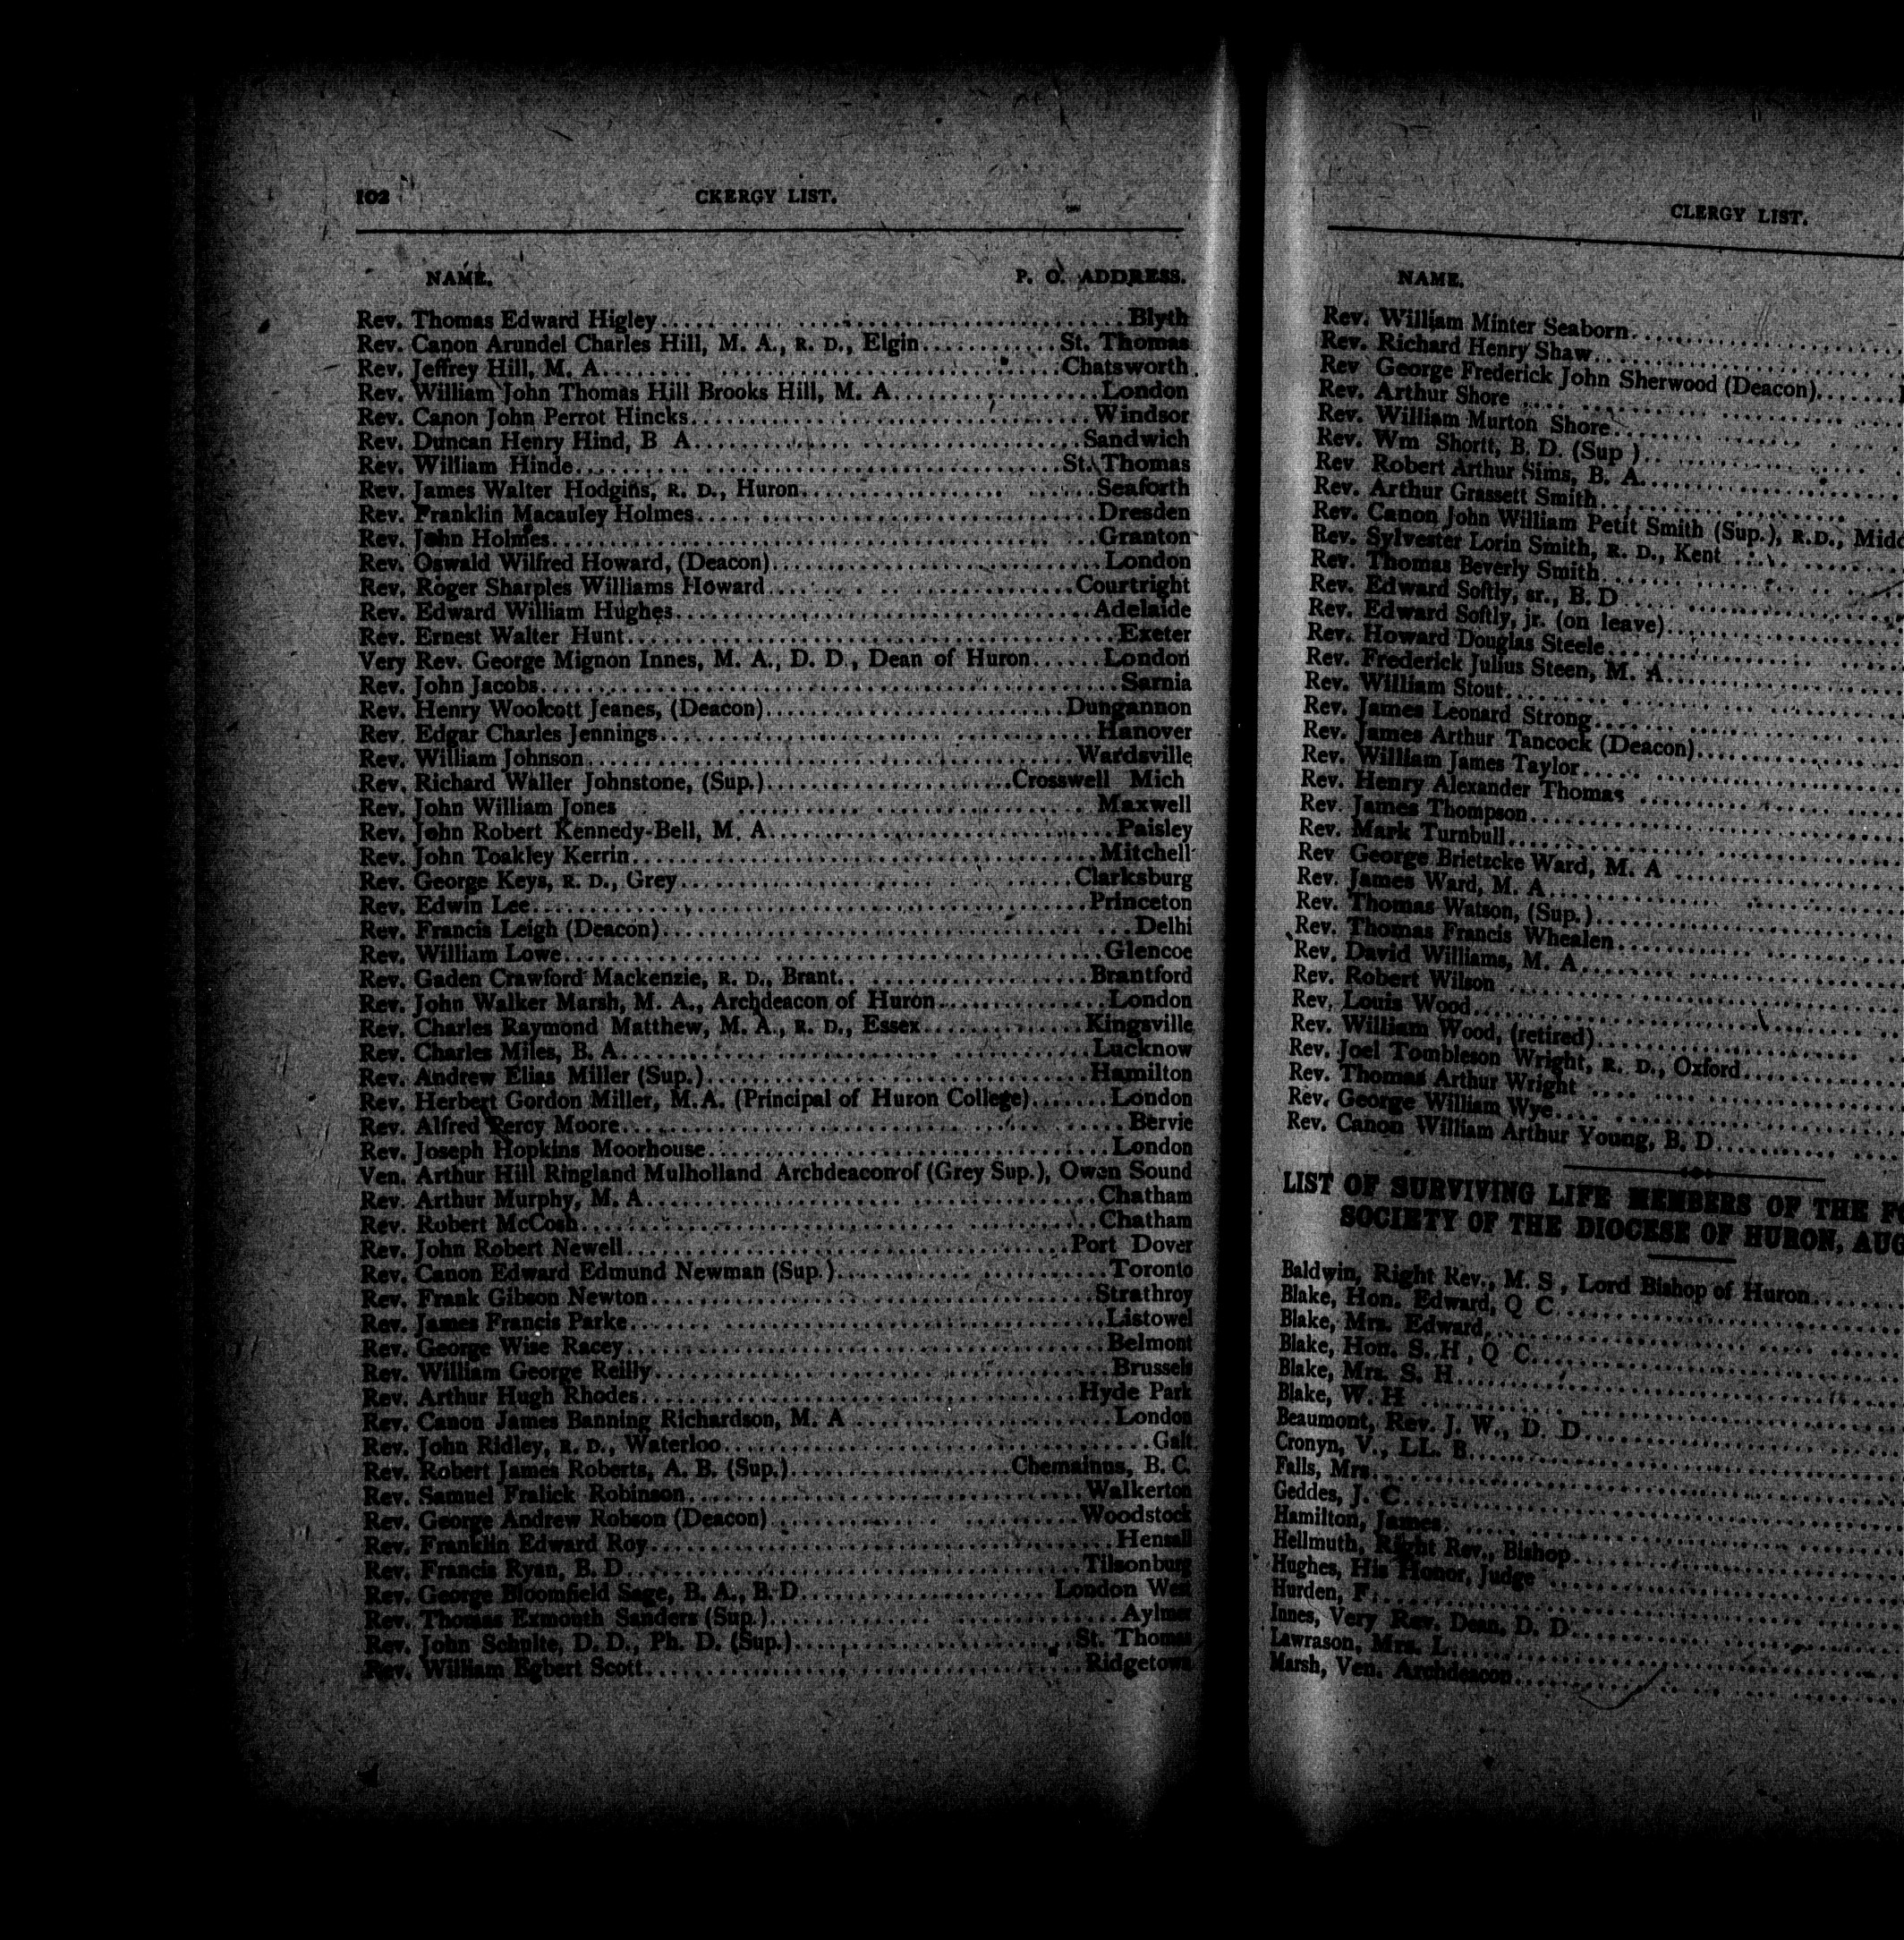 102 CKERGY LIST.
NAME. P. O. ADDRESS.
Rev. Thomas Edward Higley Blyth
Rev. Canon Arundel Charles Hill, M. A., R. D., Elgin St. Thomas
Rev. Jeffrey Hill, M. A. Chatsworth
Rev. William John Thomas Hill Brooks Hill, M. A London
Rev. Canon John Perrot Hincks Windsor
Rev. Duncan Henry Hind, B A Sandwich
Rev. William Hinde St. Thomas
Rev. James Walter Hodgins, R. D., Huron Seaforth
Rev. Franklin Macauley Holmes Dresden
Rev. John Holmes Granton
Rev. Oswald Wilfred Howard, (Deacon) London
Rev. Roger Sharples Williams Howard Courtright
Rev. Edward William Hughes Adelaide
Rev. Ernest Walter Hunt Exeter
Very Rev. George Mignon Innes, M. A., D. D., Dean of Huron London
Rev. John Jacobs Sarnia
Rev. Henry Woolcott Jeanes, (Deacon) Dungannon
Rev. Edgar Charles Jennings Hanover
Rev. William Johnson Wardsville
Rev. Richard Waller Johnstone, (Sup.) Crosswell Mich
Rev. John William Jones Maxwell
Rev. John Robert Kennedy-Bell, M. A Paisley
Rev. John Toakley Kerrin Mitchell
Rev. George Keys, R. D., Grey Clarksburg
Rev. Edwin Lee Princeton
Rev. Francis Leigh (Deacon) Delhi
Rev. William Lowe Glencoe
Rev. Gaden Crawford Mackenzie, R. D., Brant Brantford
Rev. John Walker Marsh, M. A., Archdeacon of Huron London
Rev. Charles Raymond Matthew, M. A., R. D., Essex Kingsville
Rev. Charles Miles, B. A Lucknow
Rev. Andrew Elias Miller (Sup.) Hamilton
Rev. Herbert Gordon Miller, M.A. (Principal of Huron College) London
Rev. Alfred Percy Moore Bervie
Rev. Joseph Hopkins Moorhouse London
Ven. Arthur Hill Ringland Mulholland Archdeacon of (Grey Sup.), Owen Sound
Rev. Arthur Murphy, M. A Chatham
Rev. Robert McCosh Chatham
Rev. John Robert Newell Port Dover
Rev. Canon Edward Edmund Newman (Sup.) Toronto
Rev. Frank Gibson Newton Strathroy
Rev. James Francis Parke Listowel
Rev. George Wise Racey Belmont
Rev. William George Reilly Brussels
Rev. Arthur Hugh Rhodes Hyde Park
Rev. Canon James Banning Richardson, M. A London
Rev. John Ridley, R. D., Waterloo Galt
Rev. Robert James Roberts, A. B. (Sup.) Chemainus, B. C.
Rev. Samuel Fralick Robinson Walkerton
Rev. George Andrew Robson (Deacon) Woodstock
Rev. Franklin Edward Roy Hensall
Rev. Francis Ryan, B. D Tilsonburg
Rev. George Bloomfield Sage, B. A., B. D London West
Rev. Thomas Exmonth Sanders (Sup.) Aylmer
Rev. John Schulte, D. D., Ph. D. (Sup.) St. Thomas
Rev. William Egbert Scott Ridgetown
CLERGY LIST.
NAME.
Rev. William Minter Seaborn
Rev. Richard Henry Shaw
Rev George Frederick John Sherwood (Deacon)
Rev. Arthur Shore
Rev. William Murton Shore
Rev. Wm Shortt, B. D. (Sup )
Rev Robert Arthur Sims, B. A
Rev. Arthur Grassett Smith
Rev. Canon John William Petit Smith (Sup.), R.D., Midd
Rev. Sylvester Lorin Smith, R. D., Kent
Rev. Thomas Beverly Smith
Rev. Edward Softly, sr., B. D
Rev. Edward Softly, jr. (on leave)
Rev. Howard Douglas Steele
Rev. Frederick Julius Steen, M. A
Rev. William Stout
Rev. James Leonard Strong
Rev. James Arthur Tancock (Deacon)
Rev. William James Taylor
Rev. Henry Alexander Thomas
Rev. James Thompson
Rev. Mark Turnbull
Rev George Brietzcke Ward, M. A
Rev. James Ward, M. A
Rev. Thomas Watson, (Sup.)
Rev. Thomas Francis Whealen
Rev. David Williams, M. A
Rev. Robert Wilson
Rev. Louis Wood
Rev. William Wood, (retired)
Rev. Joel Tombleson Wright, R. D., Oxford
Rev. Thomas Arthur Wright
Rev. George William Wye
Rev. Canon William Arthur Young, B. D
LIST OF SURVIVING LIFE MEMBERS OF THE
SOCIETY OF THE DIOCESE OF HURON, AUG
Baldwin, Right Rev., M. S , Lord Bishop of Huron
Blake, Hon. Edward, Q C
Blake, Mrs. Edward
Blake, Hon. S. H , Q C
Blake, Mrs. S. H
Blake, W. H
Beaumont, Rev. J. W., D. D
Cronyn, V., LL. B
Falls, Mrs
Geddes, J. C
Hamilton, James
Hellmuth, Right Rev., Bishop
Hughes, His Honor, Judge
Hurden, F.
Innes, Very Rev. Dean, D. D
Lawrason, Mrs. L
Marsh, Ven. Archdeacon